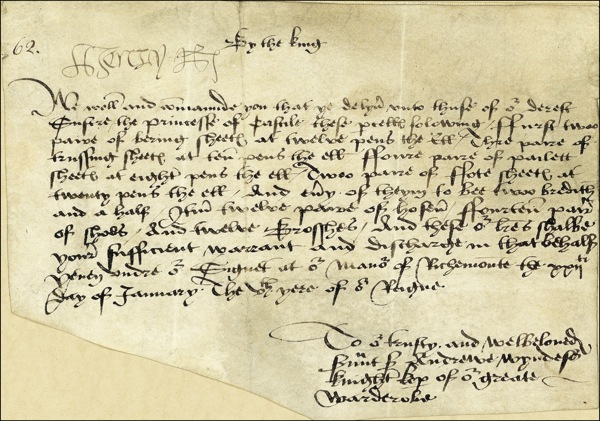 62.
Henry R
By the king
We woll and comaunde you that ye delyv unto thuse of oʳ derest
the princesse of Castile these pcells folowing, ffurst twoo
paire of bering sheets at twelve pens the ell, Thre paire of
trussing sheets at tenn pens the ell ffowre paire of pailett
sheets at eight pens the ell, Twoo paire of ffote sheets at
twenty pens the ell, And evy of theym to bee twoo bredith
and a half Itm twelve peaire of hosen ffourtenn pair
of shoes, And twelve Brosshes, And these oʳ lres shalbe
your sufficient warrant and discharge in that behalf
Yeven undre oʳ Signet at oʳ Manoʳ of Richemonte the
day of January The yere of oʳ Reigne.
To oʳ trusty and welbeloued
Sʳ Andrewe Wyndesoʳ
knight kep of oʳ greate
Warderobe